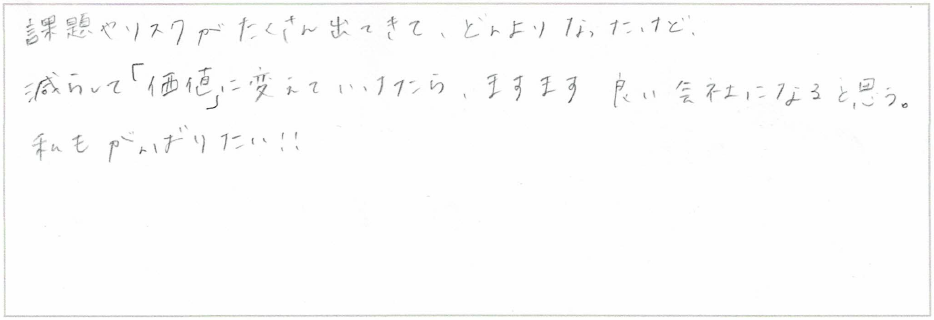 課題やリスクがたくさん出てきて、どんよりなったけど、
減らして「価値」に変えていけたら、ますます良い会社になると思う。
私もがんばりたい!!